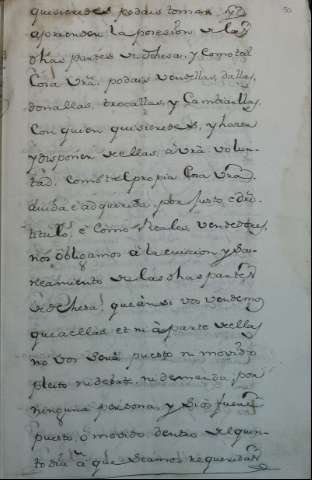 50
quisieredes podais tomar y
aprender la posesion de las
dhas partes de dehesa, y como tal
Cosa vra. podais vendellas, dallas,
donallas, trocallas, y Cambiallas,
Con quien quisieredes, y hacer
y disponer de ellas, à vra. volun-
tad. como de propia Cosa vra.
auida è adquerida, por justo, e dro.
titulo: è como Reales vendedores,
nos obligamos à la euiccion, y Sa-
neamiento de las dhas partes
de dehesa: que ansi vos vendemos
que a ellas et ni à parte de ellas
no vos Será puesto ni movido
pleito ni debate, ni demanda, por
ninguna persona, y Si os fuere
puesto, ò movido, dentro de quin-
to dia à que Seamos requeridos